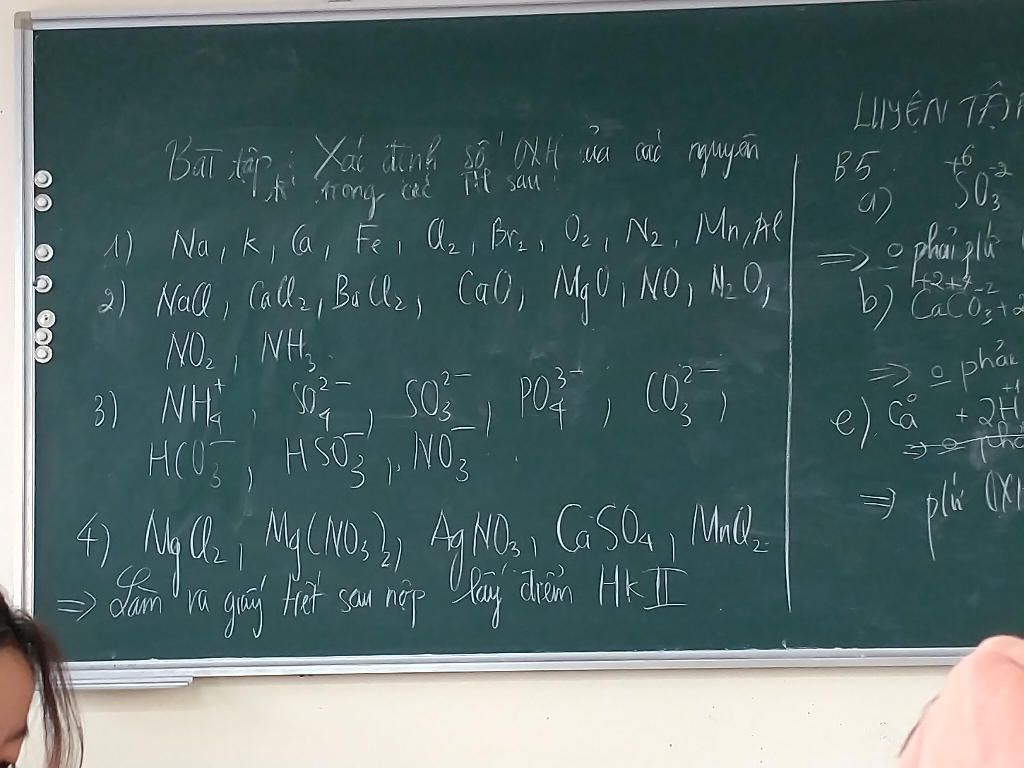 Bài tập: Xác định số OXH của các nguyên
tố trong các TH sau:
1) Na, K, Ca, Fe, Cl₂, Br₂, O₂, N₂, Mn, Al
2) NaCl, CaCl₂, BaCl₂, CaO, MgO, NO, N₂O,
NO₂, NH₃.
3) NH₄⁺, SO₄²⁻, SO₃²⁻, PO₄³⁻, CO₃²⁻,
HCO₃⁻, HSO₃⁻, NO₃⁻.
4) MgCl₂, Mg(NO₃)₂, AgNO₃, CaSO₄, MnCl₂
=> Làm ra giấy tiết sau nộp lấy điểm HkII
LUYỆN TẬP
B5
+6 -2
a) SO₃
=> o phải p/ứ
+2+4-2
b) CaCO₃ +
=> o phải
0 +1
e) Ca + 2H
=> p/ứ OXH